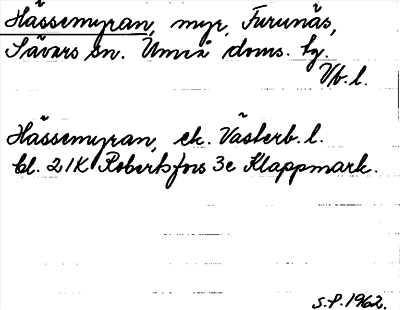 Hässemyran, myr, Furunäs,
Sävars sn. Umeå doms. by.
Vb. l.
Hässemyran, ek. Västerb. l.
bl. 21K Robertsfors 3e Klappmark.
S.P. 1962.